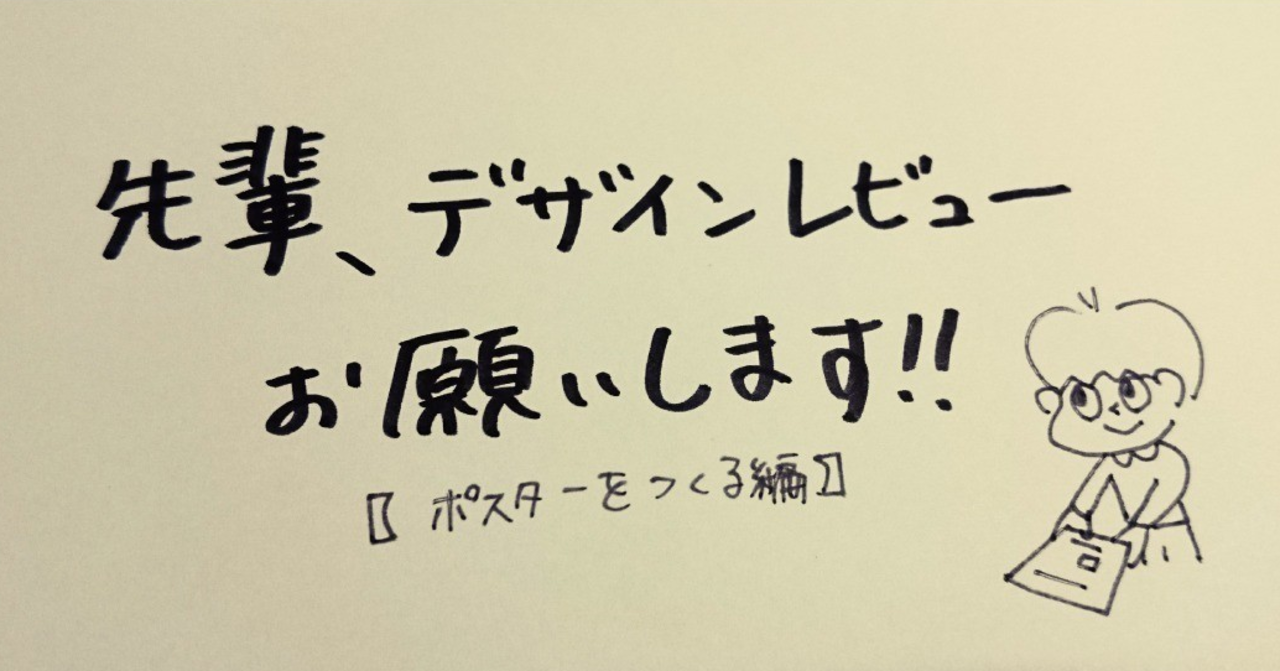 先輩、デザインレビュー
お願いします!!
【ポスターをつくる編】